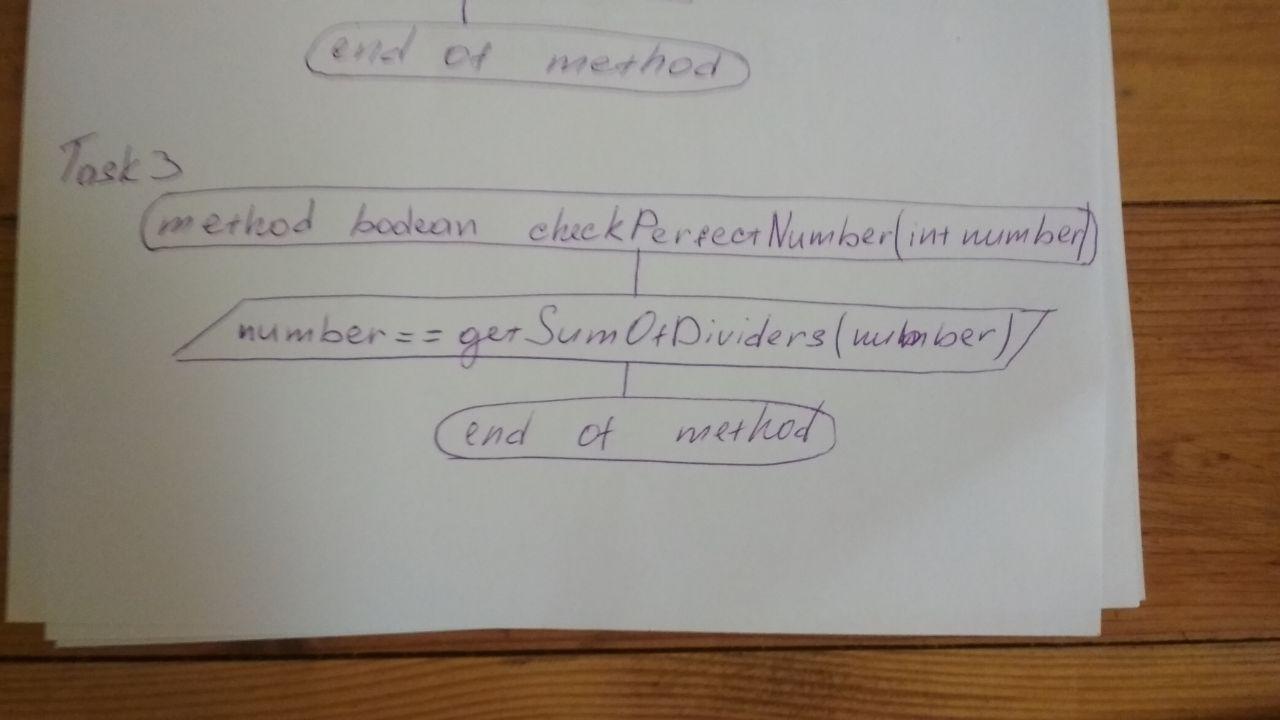 end of method
Task 3
method boolean checkPerfectNumber(int number)
number == getSumOfDividers(number)
end of method